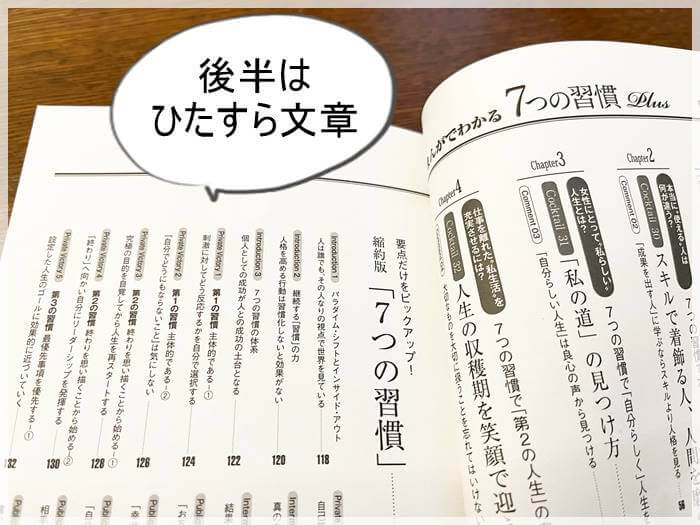 後半は
ひたすら文章
まんがでわかる 7つの習慣 Plus
Chapter 2
本当に“使える”人は何が違う?
Cocktail 30
スキルで着飾る人、人間
Comment 02
「成果を出す人」に学ぶならスキルより人格を見る
56
Chapter 3
女性にとって、“私らしい”人生とは?
Cocktail 31
「私の道」の見つけ方
7つの習慣で「自分らしく」人生を
Comment 03
「自分らしい人生」は良心の声から見つける
Chapter 4
仕事を離れた“私生活”を充実させるには?
Cocktail 32
人生の収穫期を笑顔で迎
7つの習慣で「第2の人生」の
大切なものを大切に扱うことを忘れてはいけな
要点だけをピックアップ!
縮約版「7つの習慣」
Introduction 1 パラダイム・シフトとインサイド・アウト
人は誰でも、その人なりの視点で世界を見ている 118
Introduction 2 継続する「習慣」の力
人格を高める行動は習慣化しないと効果がない 120
Introduction 3 7つの習慣の体系
個人としての成功が人との成功の土台となる 122
Private Victory 1 第1の習慣 主体的である―①
刺激に対してどう反応するかを自分で選択する 124
Private Victory 2 第1の習慣 主体的である―②
「自分でどうにもならないこと」は気にしない 126
Private Victory 3 第2の習慣 終わりを思い描くことから始める―①
究極の目的を自覚してから人生を再スタートする 128
Private Victory 4 第2の習慣 終わりを思い描くことから始める―②
「終わり」へ向かい自分にリーダーシップを発揮する 130
Private Victory 5 第3の習慣 最優先事項を優先する―①
設定した人生のゴールに効果的に近づいていく 132